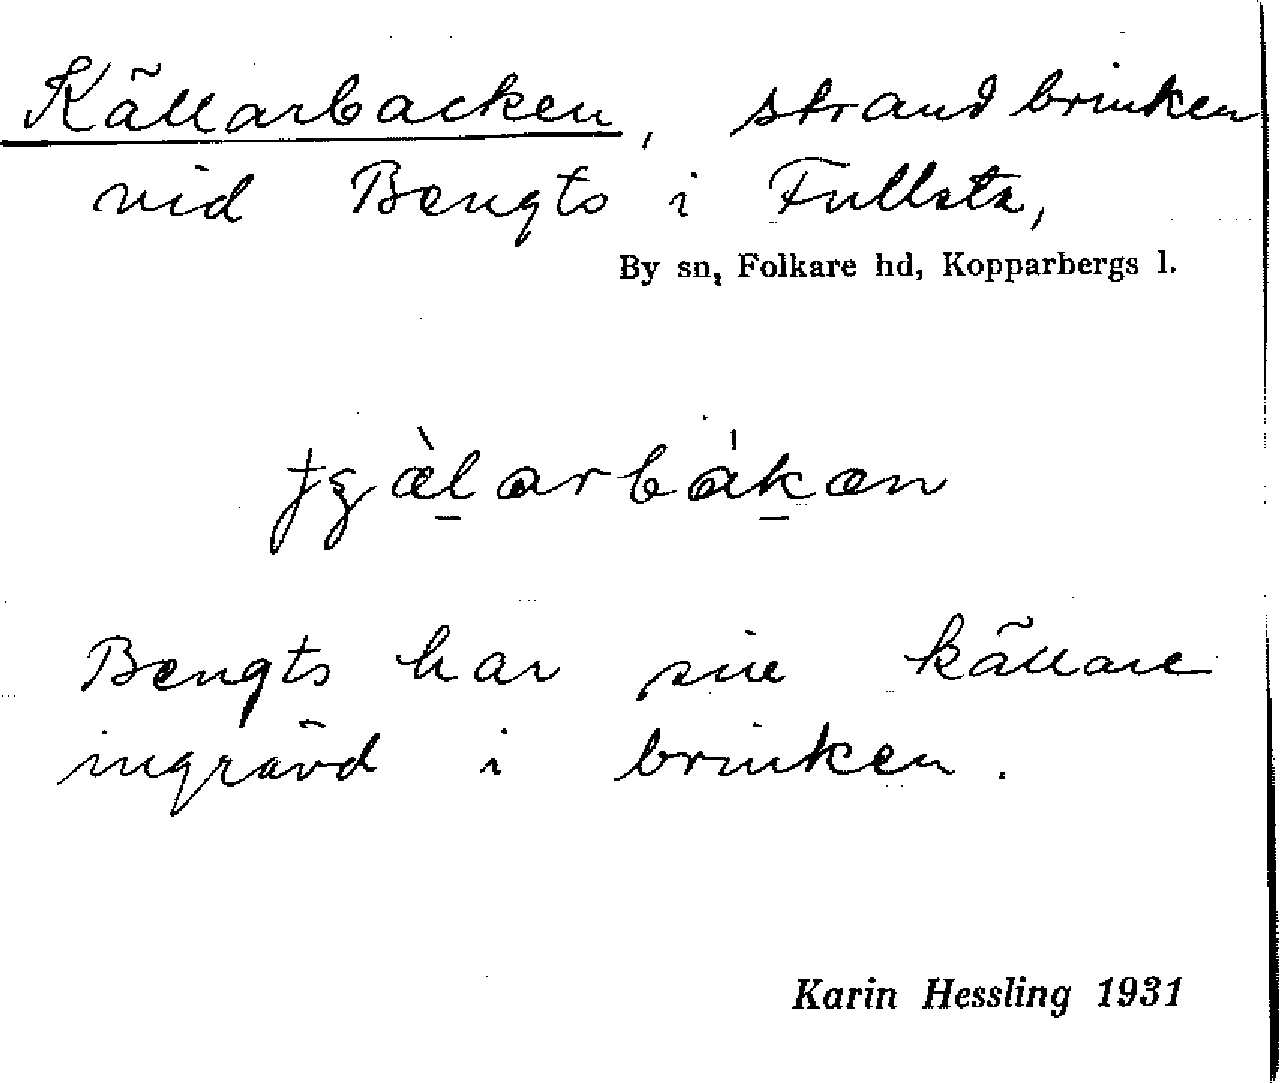 Källarbacken, strandbrinken
vid Bengts i Fullsta,
By sn, Folkare hd, Kopparbergs l.
ɟʂæ̀l̠arbák̠æn
Bengts har sin källare
ingrävd i brinken.
Karin Hessling 1931